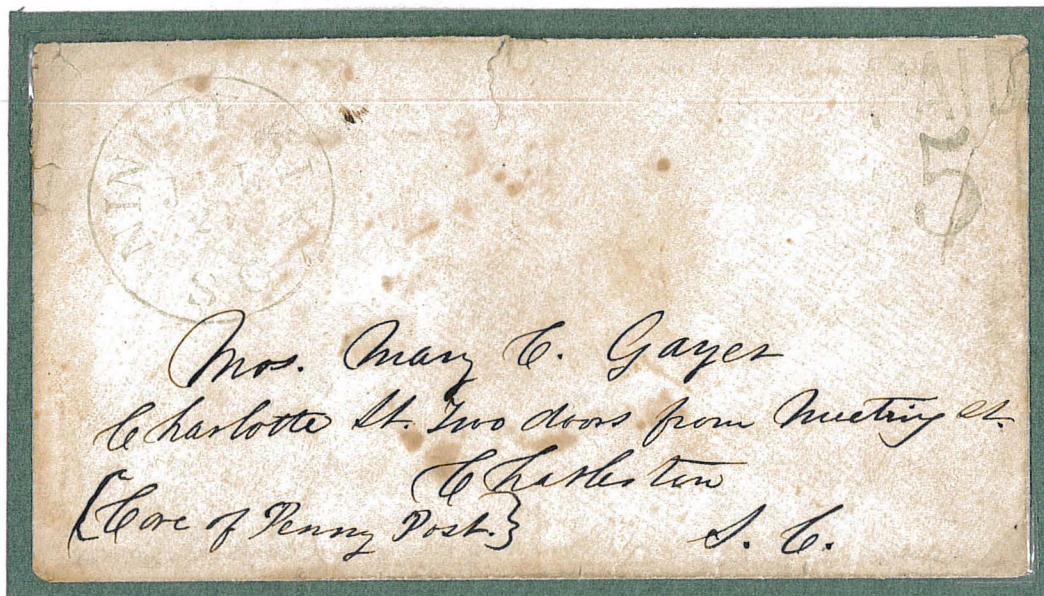 NINETY SIX
S.C.
PAID
5
Mrs. Mary C. Gayer
Charlotte St. Two doors from Meeting St.
Charleston
(Care of Penny Post.}
S. C.